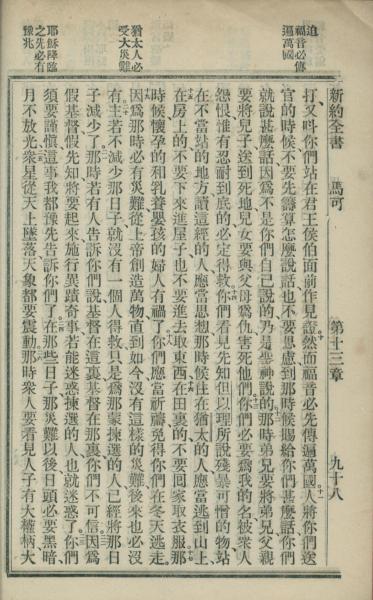 新約全書 馬可 第十三章 九十八
迫
福音必傳
遍萬國
猶太人必
受大災難
耶穌降臨
之先必有
豫兆
打又呌你們站在君王侯伯面前作見證然而福音必先傳遍萬國人將你們送
官的時候不要先籌算怎麽說話也不要思慮到那時候賜給你們甚麽話你們
就說甚麽話因爲不是你們自己說的乃是聖神說的那時弟兄要將弟兄父親
要將兒子送到死地兒女要與父母爲仇害死他們你們必要爲我的名被衆人
怨恨惟有忍耐到底的必定得救你們看見先知但以理所說殘暴可憎的物站
在不當站的地方讀這經的人應當思想那時候住在猶太的人應當逃到山上
在房上的不要下來進屋子也不要進去取東西在田裏的不要回家取衣服那
時候懷孕的和乳養嬰孩的婦人有禍了你們應當祈禱免得你們在冬天逃走
因爲那時必有災難從上帝創造萬物直到如今沒有這樣的災難後來也必沒
有主若不減少那日子就沒有一個人得救只是爲那蒙揀選的人已經將那日
子減少了那時若有人告訴你們說基督在這裏基督在那裏你們不可信因爲
假基督假先知將要起來施行異蹟奇事若能迷惑揀選的人也就迷惑了你們
須要謹愼這事我都豫先告訴你們了在那些日子那災難以後日頭必要黑暗
月不放光衆星從天上墜落天象都要震動那時衆人要看見人子有大權柄大